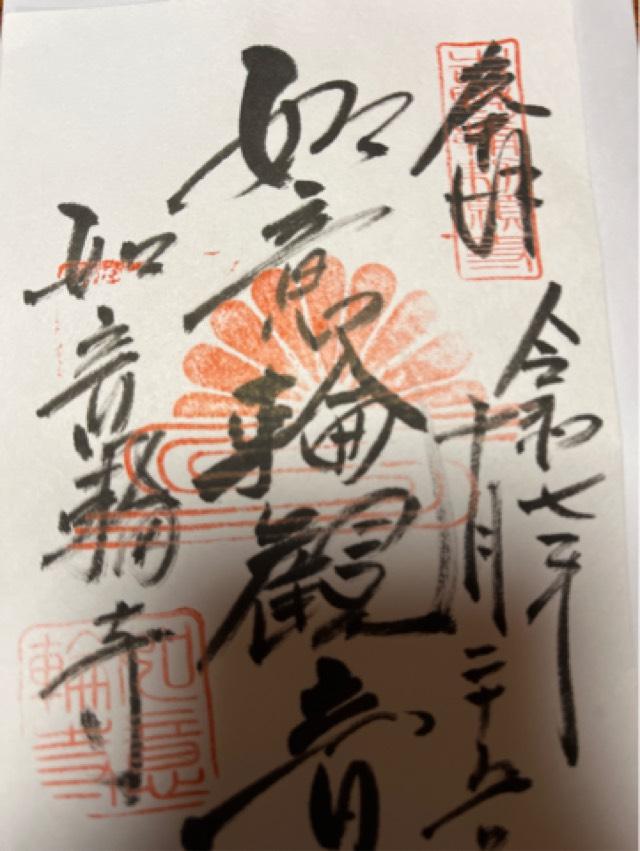 奉拝
令和七年
十月二十九日
如意輪観音
如意輪寺
如意
輪寺